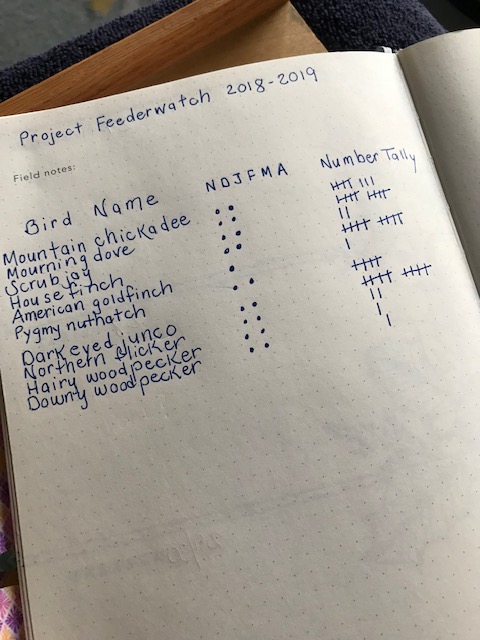 Project Feederwatch 2018-2019
Field notes:
Bird Name N D J F M A Number Tally
Mountain chickadee
Mourning dove
Scrub jay
House finch
American goldfinch
Pygmy nuthatch
Dark eyed junco
Northern flicker
Hairy woodpecker
Downy woodpecker